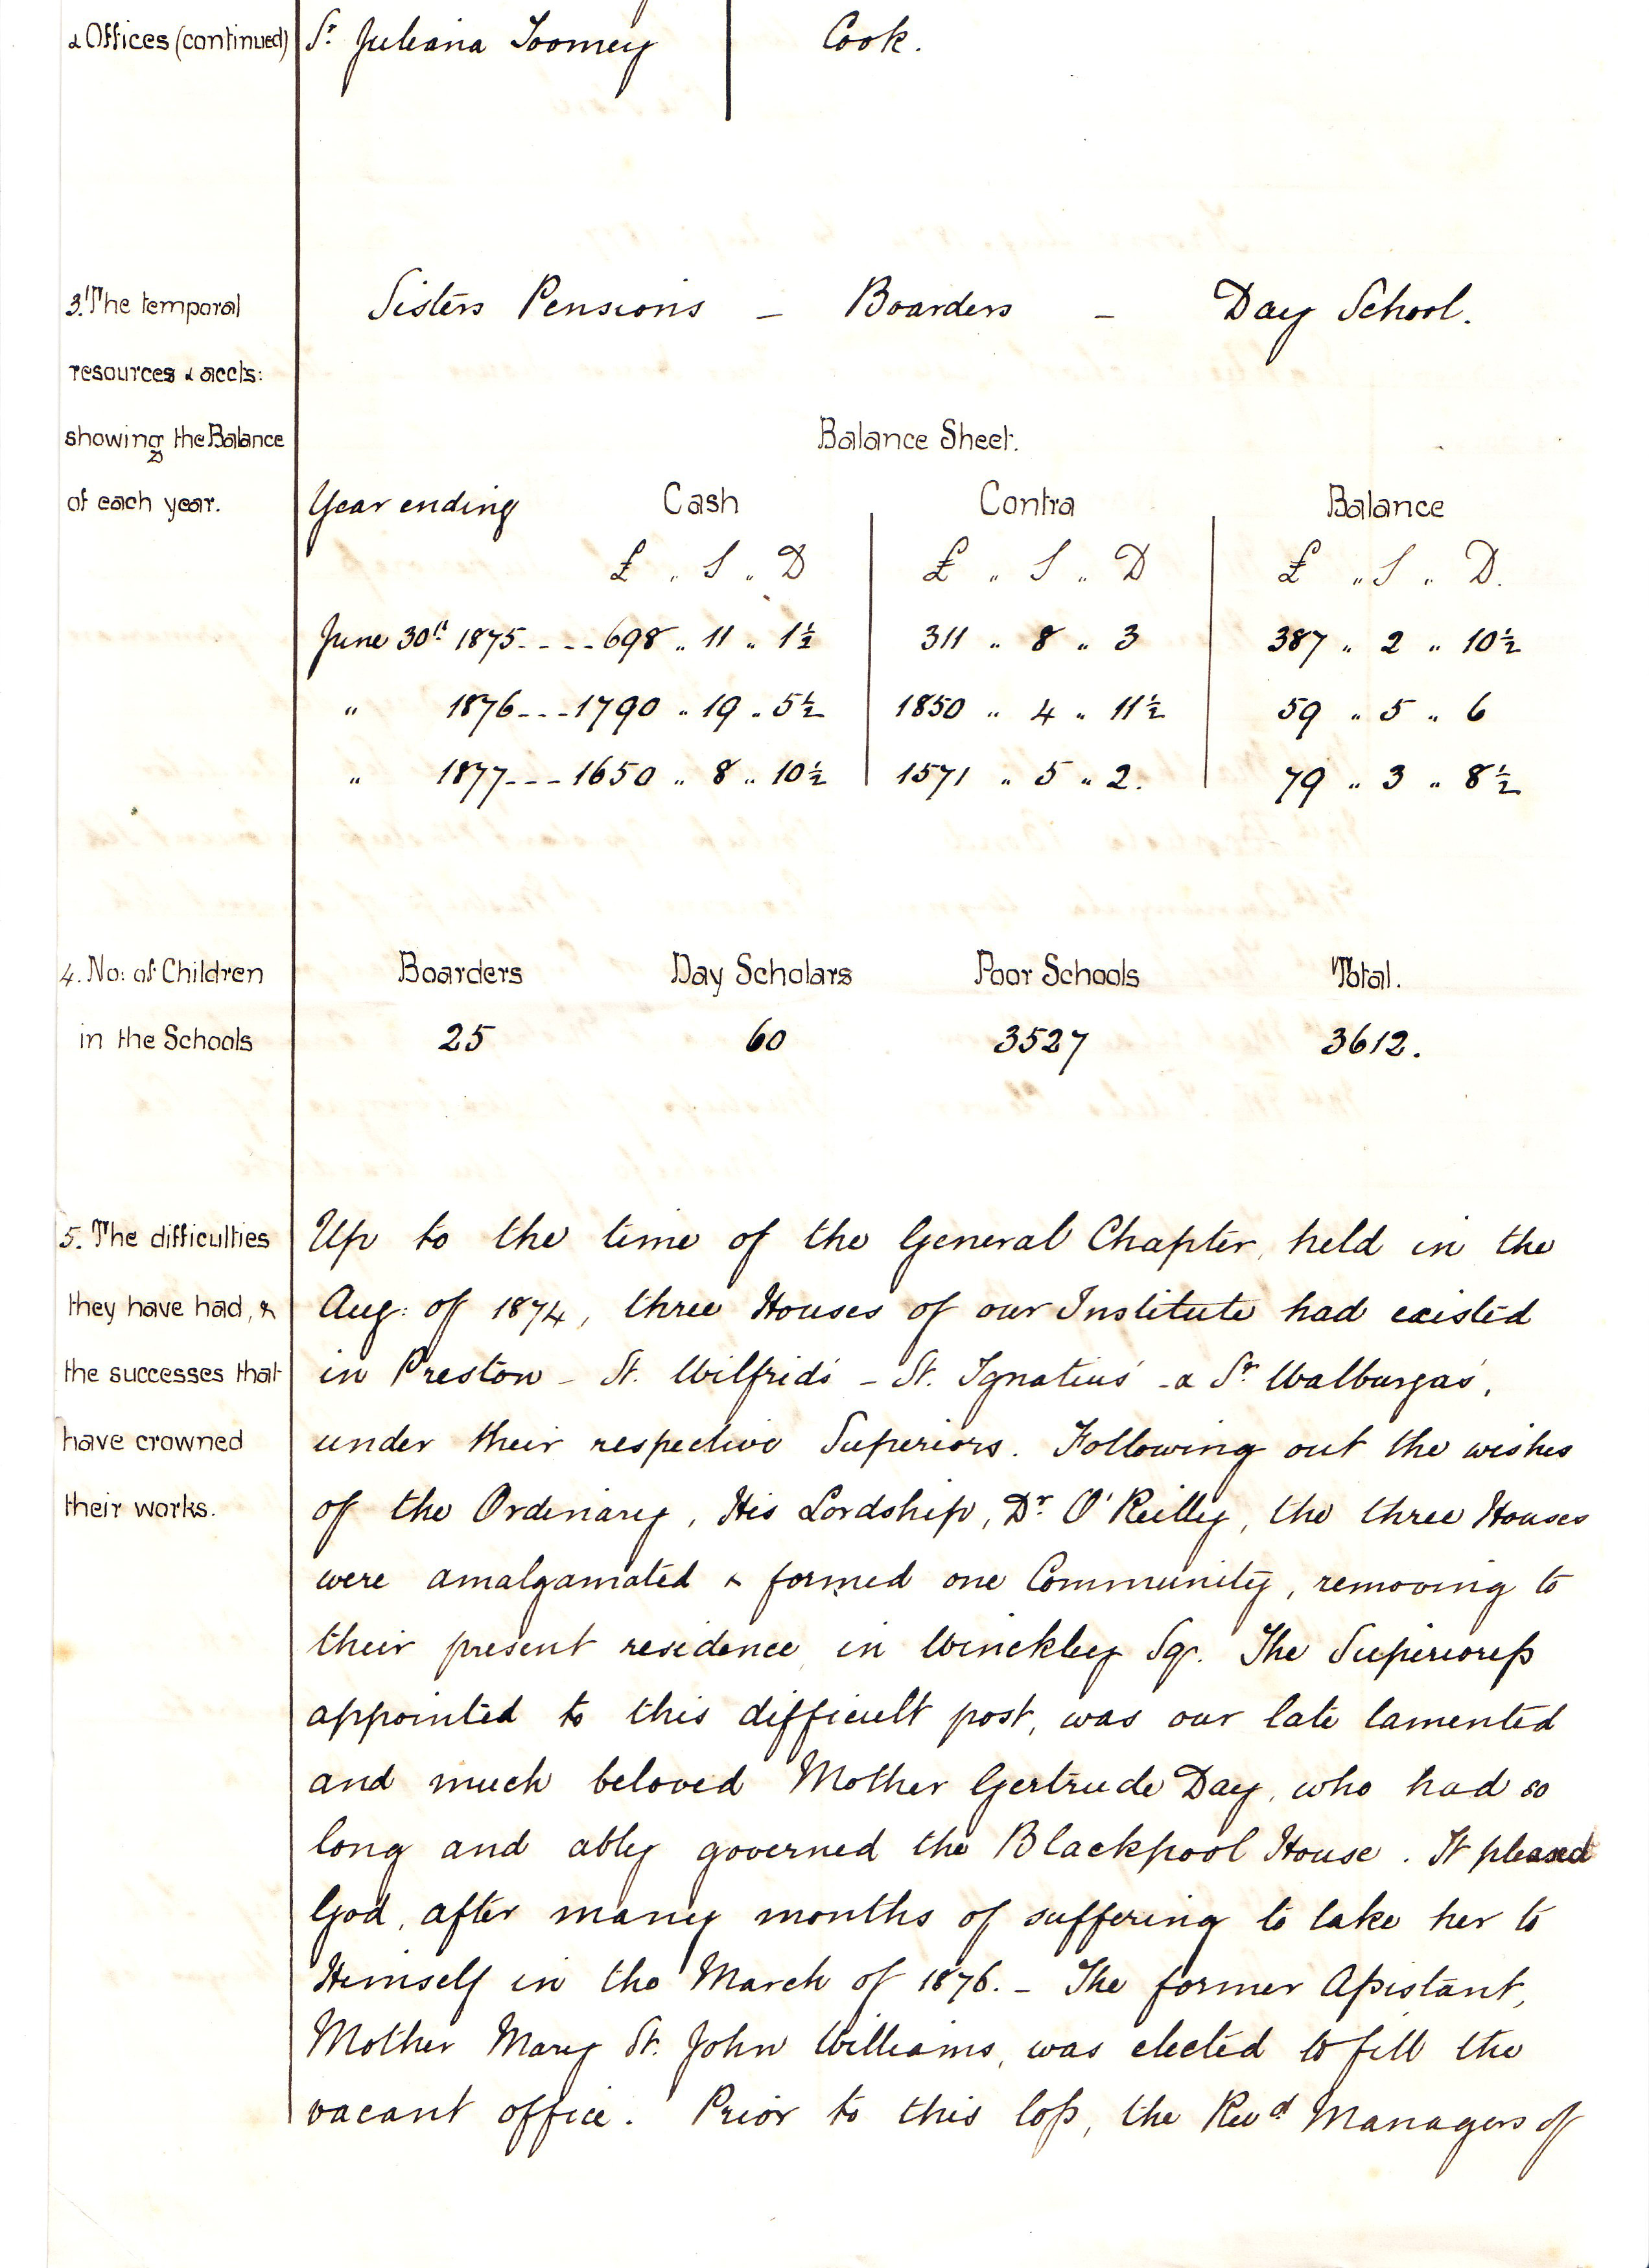 & Offices (continued) Sr. Juliana Toomey Cook.
3. The temporal Sisters Pensions – Boarders – Day School.
resources & accts:
showing the Balance Balance Sheet.
of each year. Year ending Cash Contra Balance
£ „ S „ D £ „ S „ D £ „ S „ D.
June 30th 1875 - - - - 698 „ 11 „ 1½ 311 „ 8 „ 3 387 „ 2 „ 10½
„ 1876 - - - 1790 „ 19 „ 5½ 1850 „ 4 „ 11½ 59 „ 5 „ 6
„ 1877 - - - 1650 „ 8 „ 10½ 1571 „ 5 „ 2. 79 „ 3 „ 8½
4. No: of Children Boarders Day Scholars Poor Schools Total.
in the Schools 25 60 3527 3612.
5. The difficulties Up to the time of the General Chapter, held in the
they have had, & Aug: of 1874, three Houses of our Institute had existed
the successes that in Preston – St. Wilfrid's – St. Ignatius' – & St. Walburga's,
have crowned under their respective Superiors. Following out the wishes
their works. of the Ordinary, His Lordship, Dr. O'Reilly, the three Houses
were amalgamated & formed one Community, removing to
their present residence in Winckley Sq. The Superioress
appointed to this difficult post, was our late lamented
and much beloved Mother Gertrude Day, who had so
long and ably governed the Blackpool House. It pleased
God, after many months of suffering to take her to
Himself in the March of 1876. – The former Assistant,
Mother Mary St. John Williams, was elected to fill the
vacant office. Prior to this loss, the Revd. Managers of